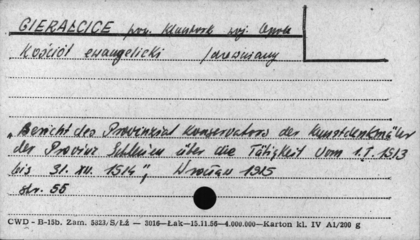 GIERAŁCICE pow. Kluczbork woj. Opole
Kościół ewangelicki /drewniany
„Bericht des Provinzial Konservators der Kunstdenkmäler
der Provinz Schlesien über die Tätigkeit vom 1.I.1913
bis 31. XII. 1914", Wrocław 1915
str. 55
CWD - B-15b. Zam. 5823/S/Łż — 3016—Łak—15.11.56—4.000.000—Karton kl. IV A1/200 g